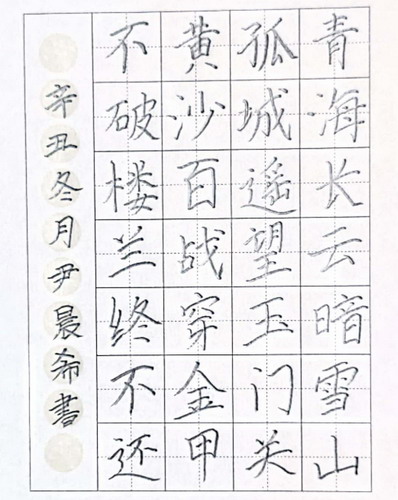 青海长云暗雪山
孤城遥望玉门关
黄沙百战穿金甲
不破楼兰终不还
辛丑冬月尹晨希書